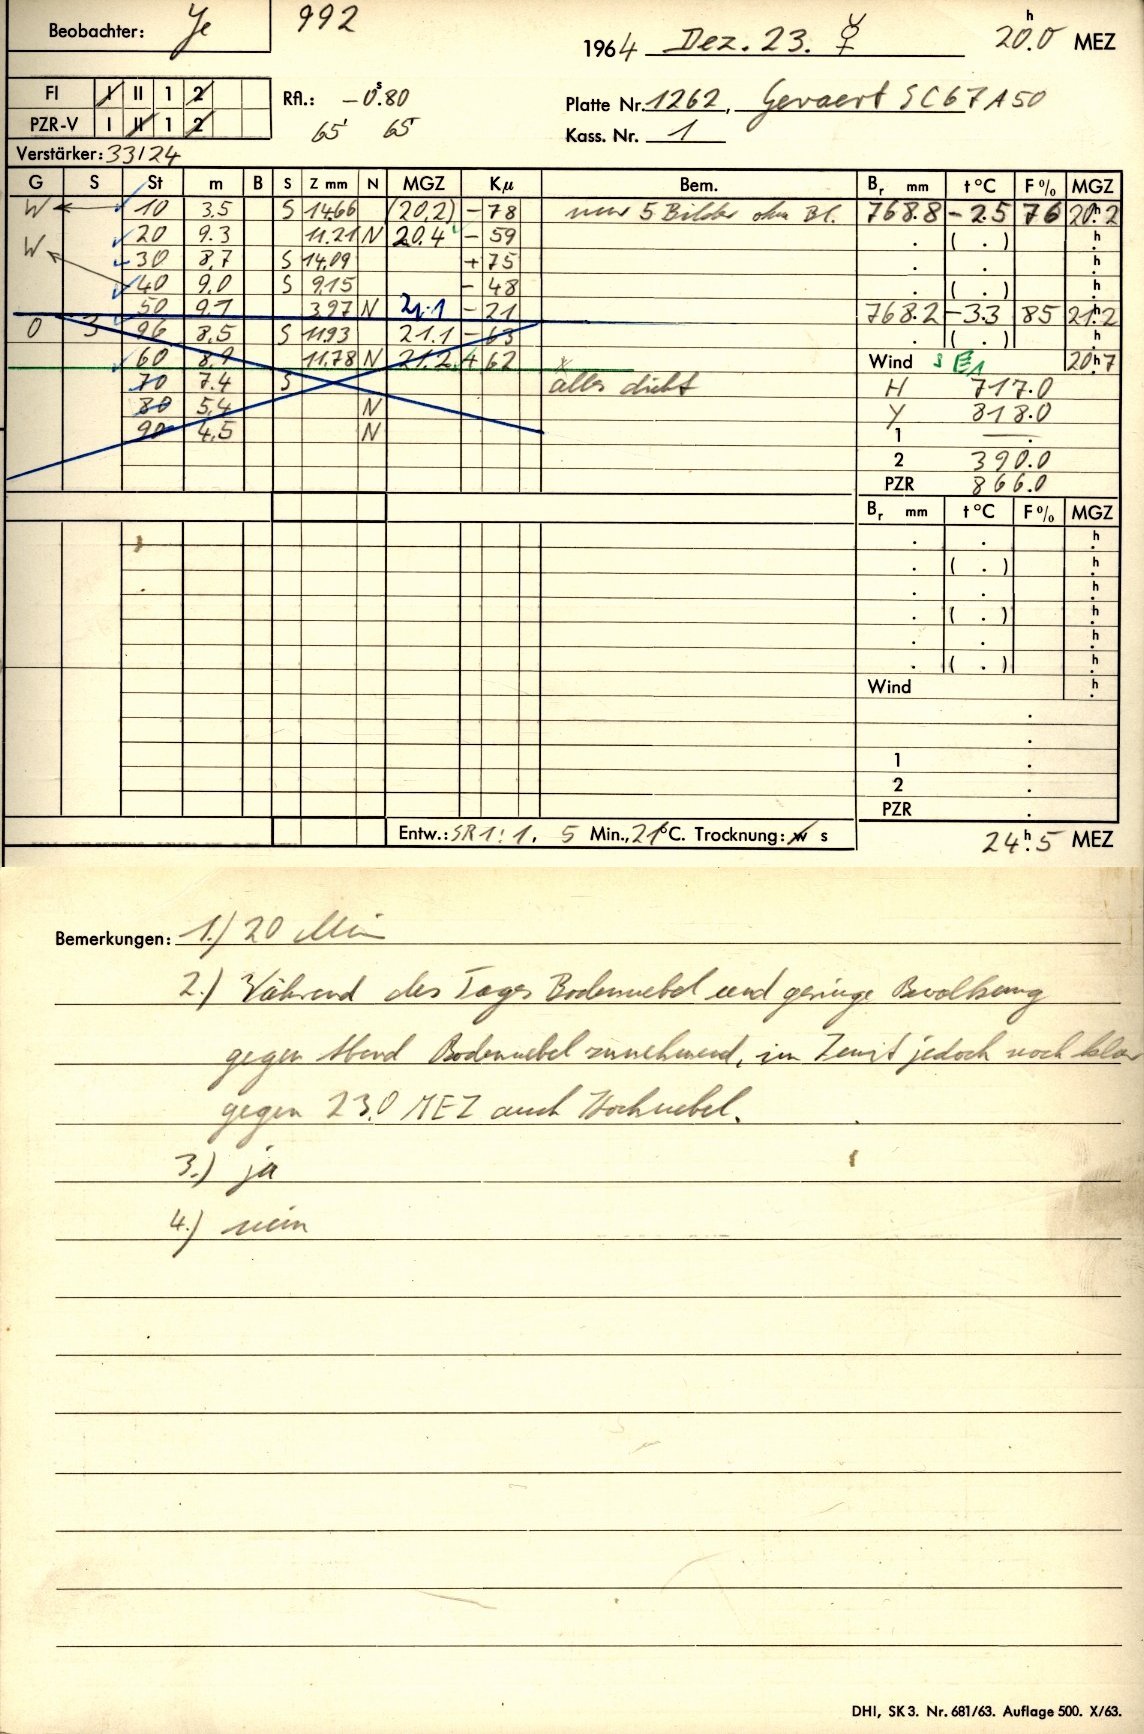 Beobachter: Je 992 1964 Dez. 23. ☿ 20h.0 MEZ
FI I II 1 2 Rfl.: -0s.80 Platte Nr. 1262, Gevaert SC67A50
PZR-V I II 1 2 65' 65' Kass. Nr. 1
Verstärker: 33/24
G S St m B S Z mm N MGZ Kμ Bem. Br mm t °C F % MGZ
W 10 3.5 S 14.66 (20.2) - 78 nur 5 Bilder ohne Bl. 768.8 - 2.5 76 20h.2
20 9.3 11.21 N 20.4 - 59 . ( . ) h.
W 30 8.7 S 14.09 + 75 . . h.
40 9.0 S 9.15 - 48 . ( . ) h.
50 9.1 3.97 N 21.1 - 21 768.2 - 3.3 85 21h.2
0 3 96 8.5 S 11.93 21.1 - 63 . ( . ) h.
60 8.9 11.78 N 21.2 + 62 Wind S E1 20h.7
70 7.4 S alles dicht H 717.0
80 5.4 N Y 818.0
90 4.5 N 1 — .
2 390.0
PZR 866.0
Br mm t °C F % MGZ
. . h.
. ( . ) h.
. . h.
. ( . ) h.
. . h.
. ( . ) h.
Wind h.
.
.
1 .
2 .
PZR .
Entw.: SR 1:1. 5 Min., 21 °C. Trocknung: w s 24h.5 MEZ
Bemerkungen: 1.) 20 Min
2.) Während des Tages Bodennebel und geringe Bewölkung
gegen Abend Bodennebel zunehmend, im Zenit jedoch noch klar
gegen 23.0 MEZ auch Hochnebel.
3.) ja
4.) nein
DHI, SK 3. Nr. 681/63. Auflage 500. X/63.